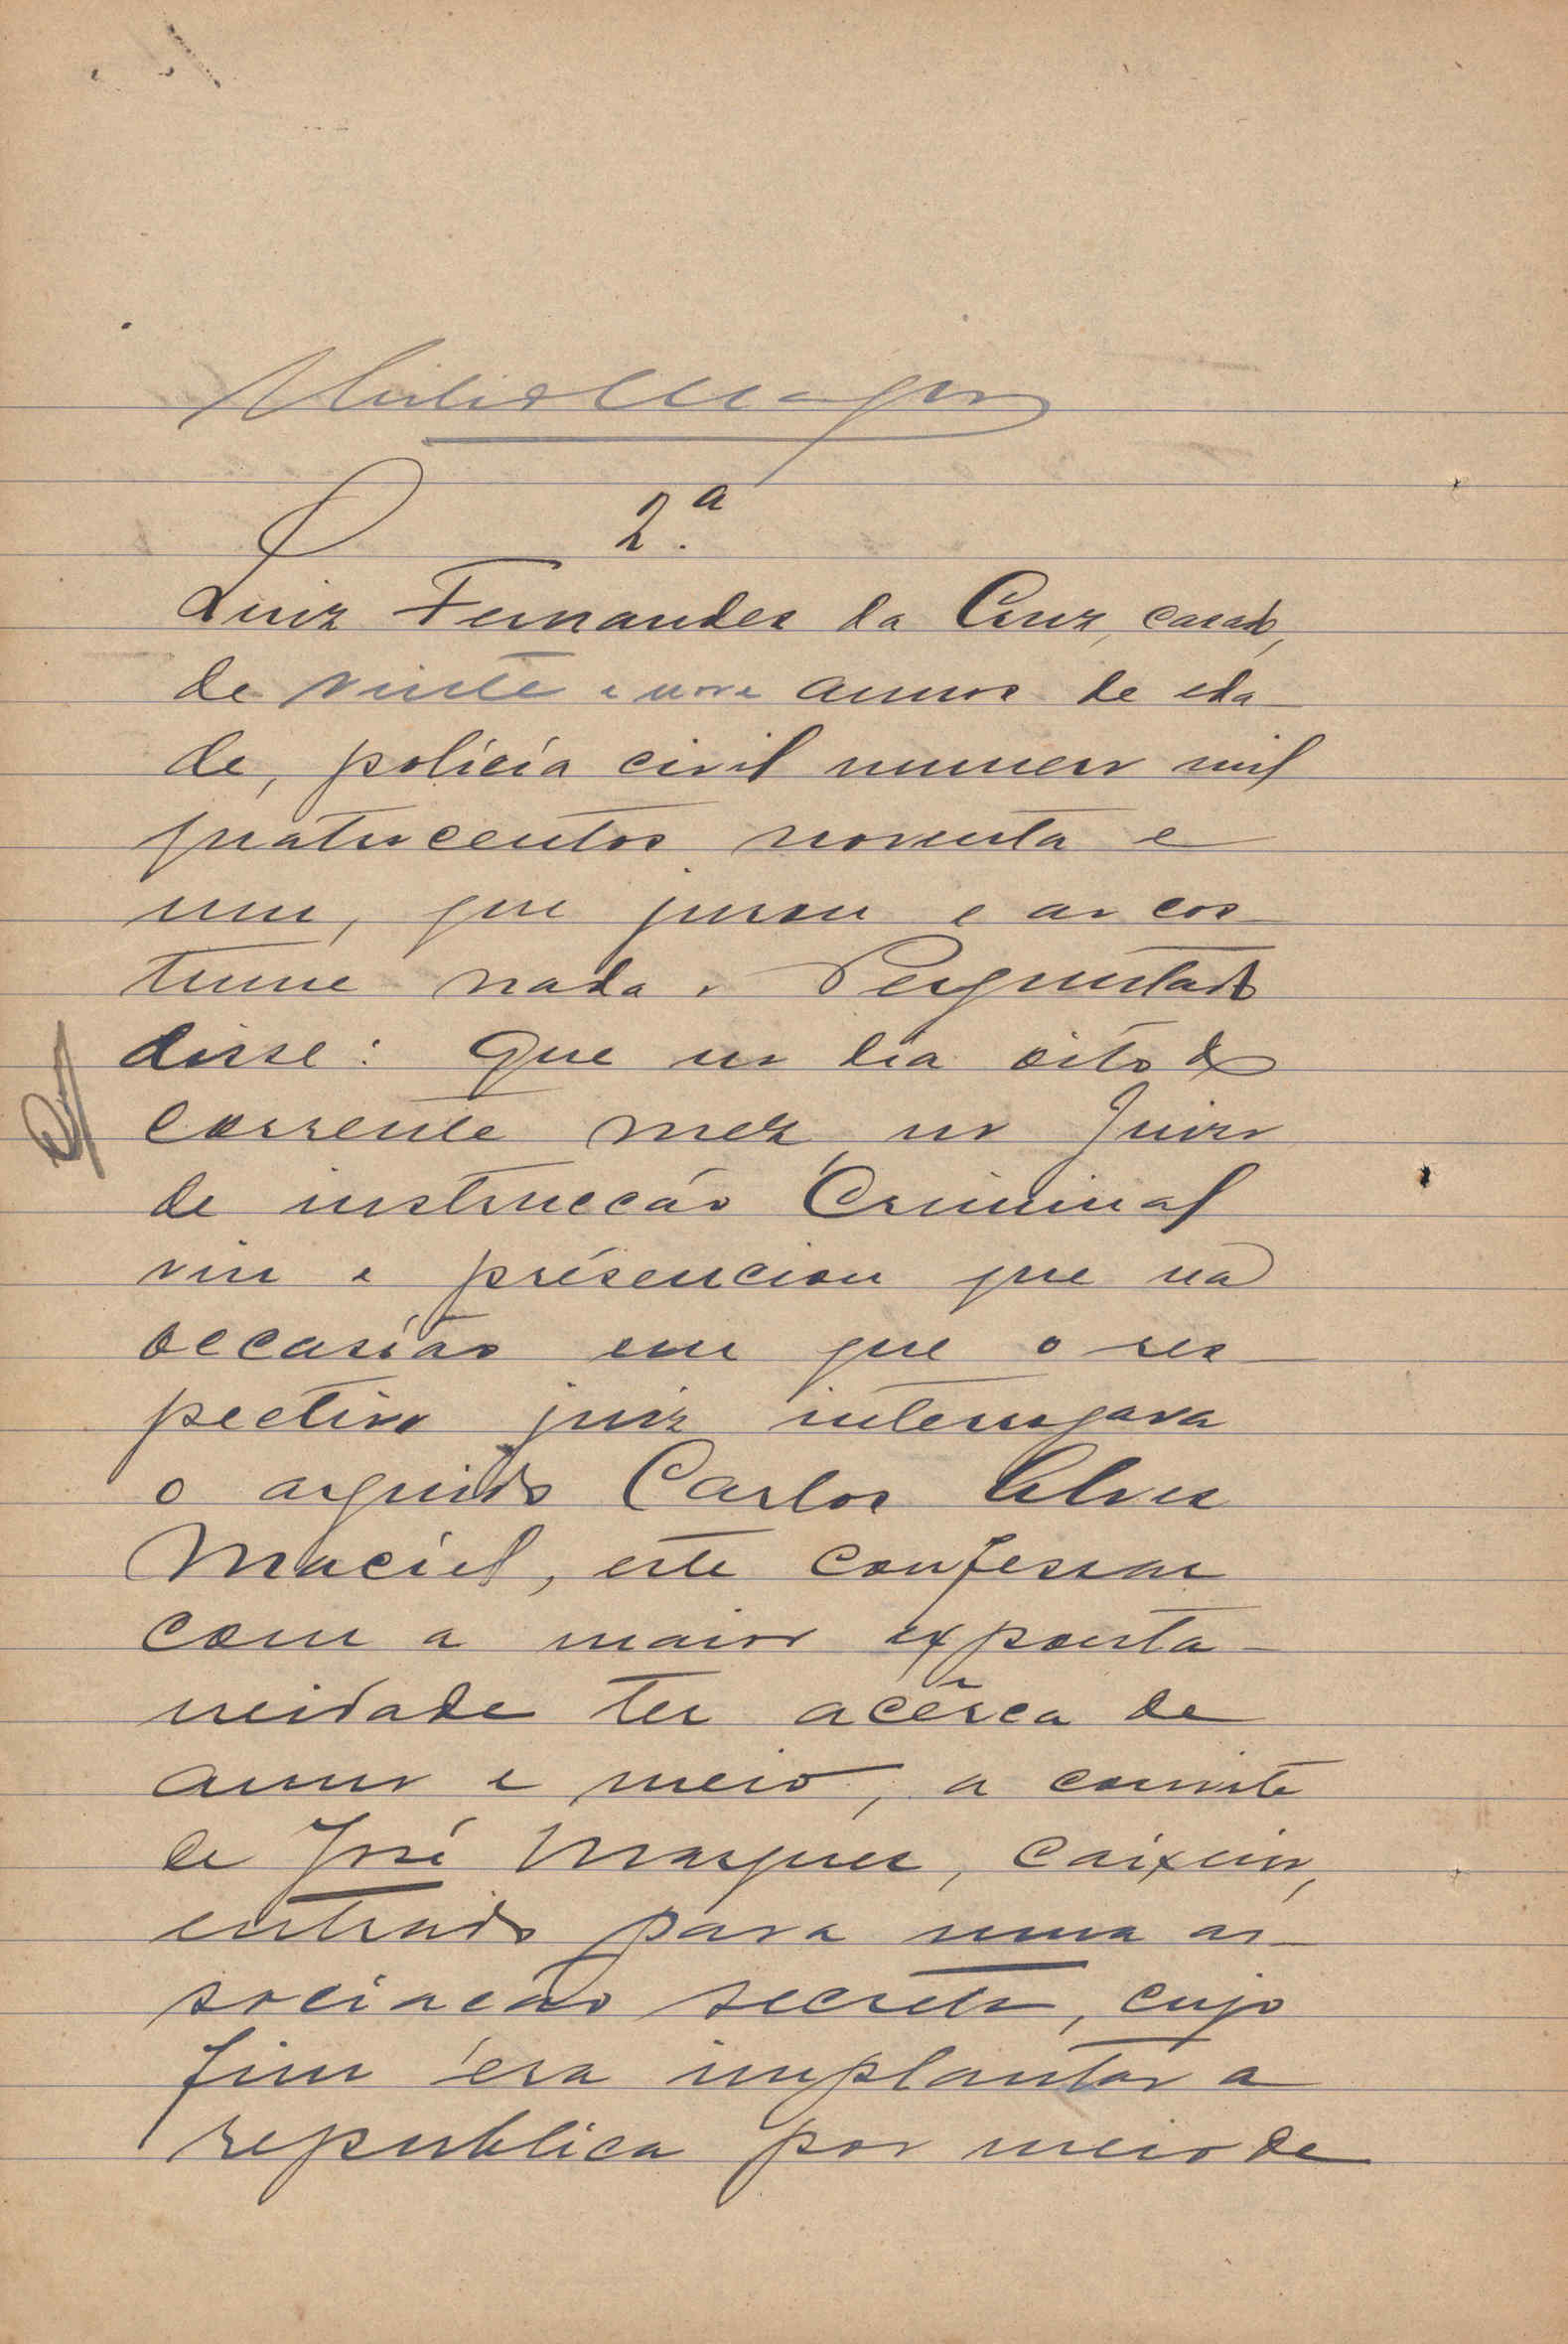 2.ª
Luiz Fernandes da Cruz, casado,
de vinte e nove annos de eda-
de, policia civil numero mil
quatrocentos noventa e
um, que jurou e aos cos-
tume nada. Perguntado
disse: Que no dia oito do
corrente mez, no Juizo
de instrucção Criminal
viu e présenciou que na
occasião em que o res-
pectivo juiz interrogava
o arguido Carlos Alves
Maciel, este confessou
com a maior exponta-
neidade ter acêrca de
anno e meio, a convite
de José Marques, caixeiro,
entrado para uma as-
sociação secreta, cujo
fim éra implantar a
republica por meio de